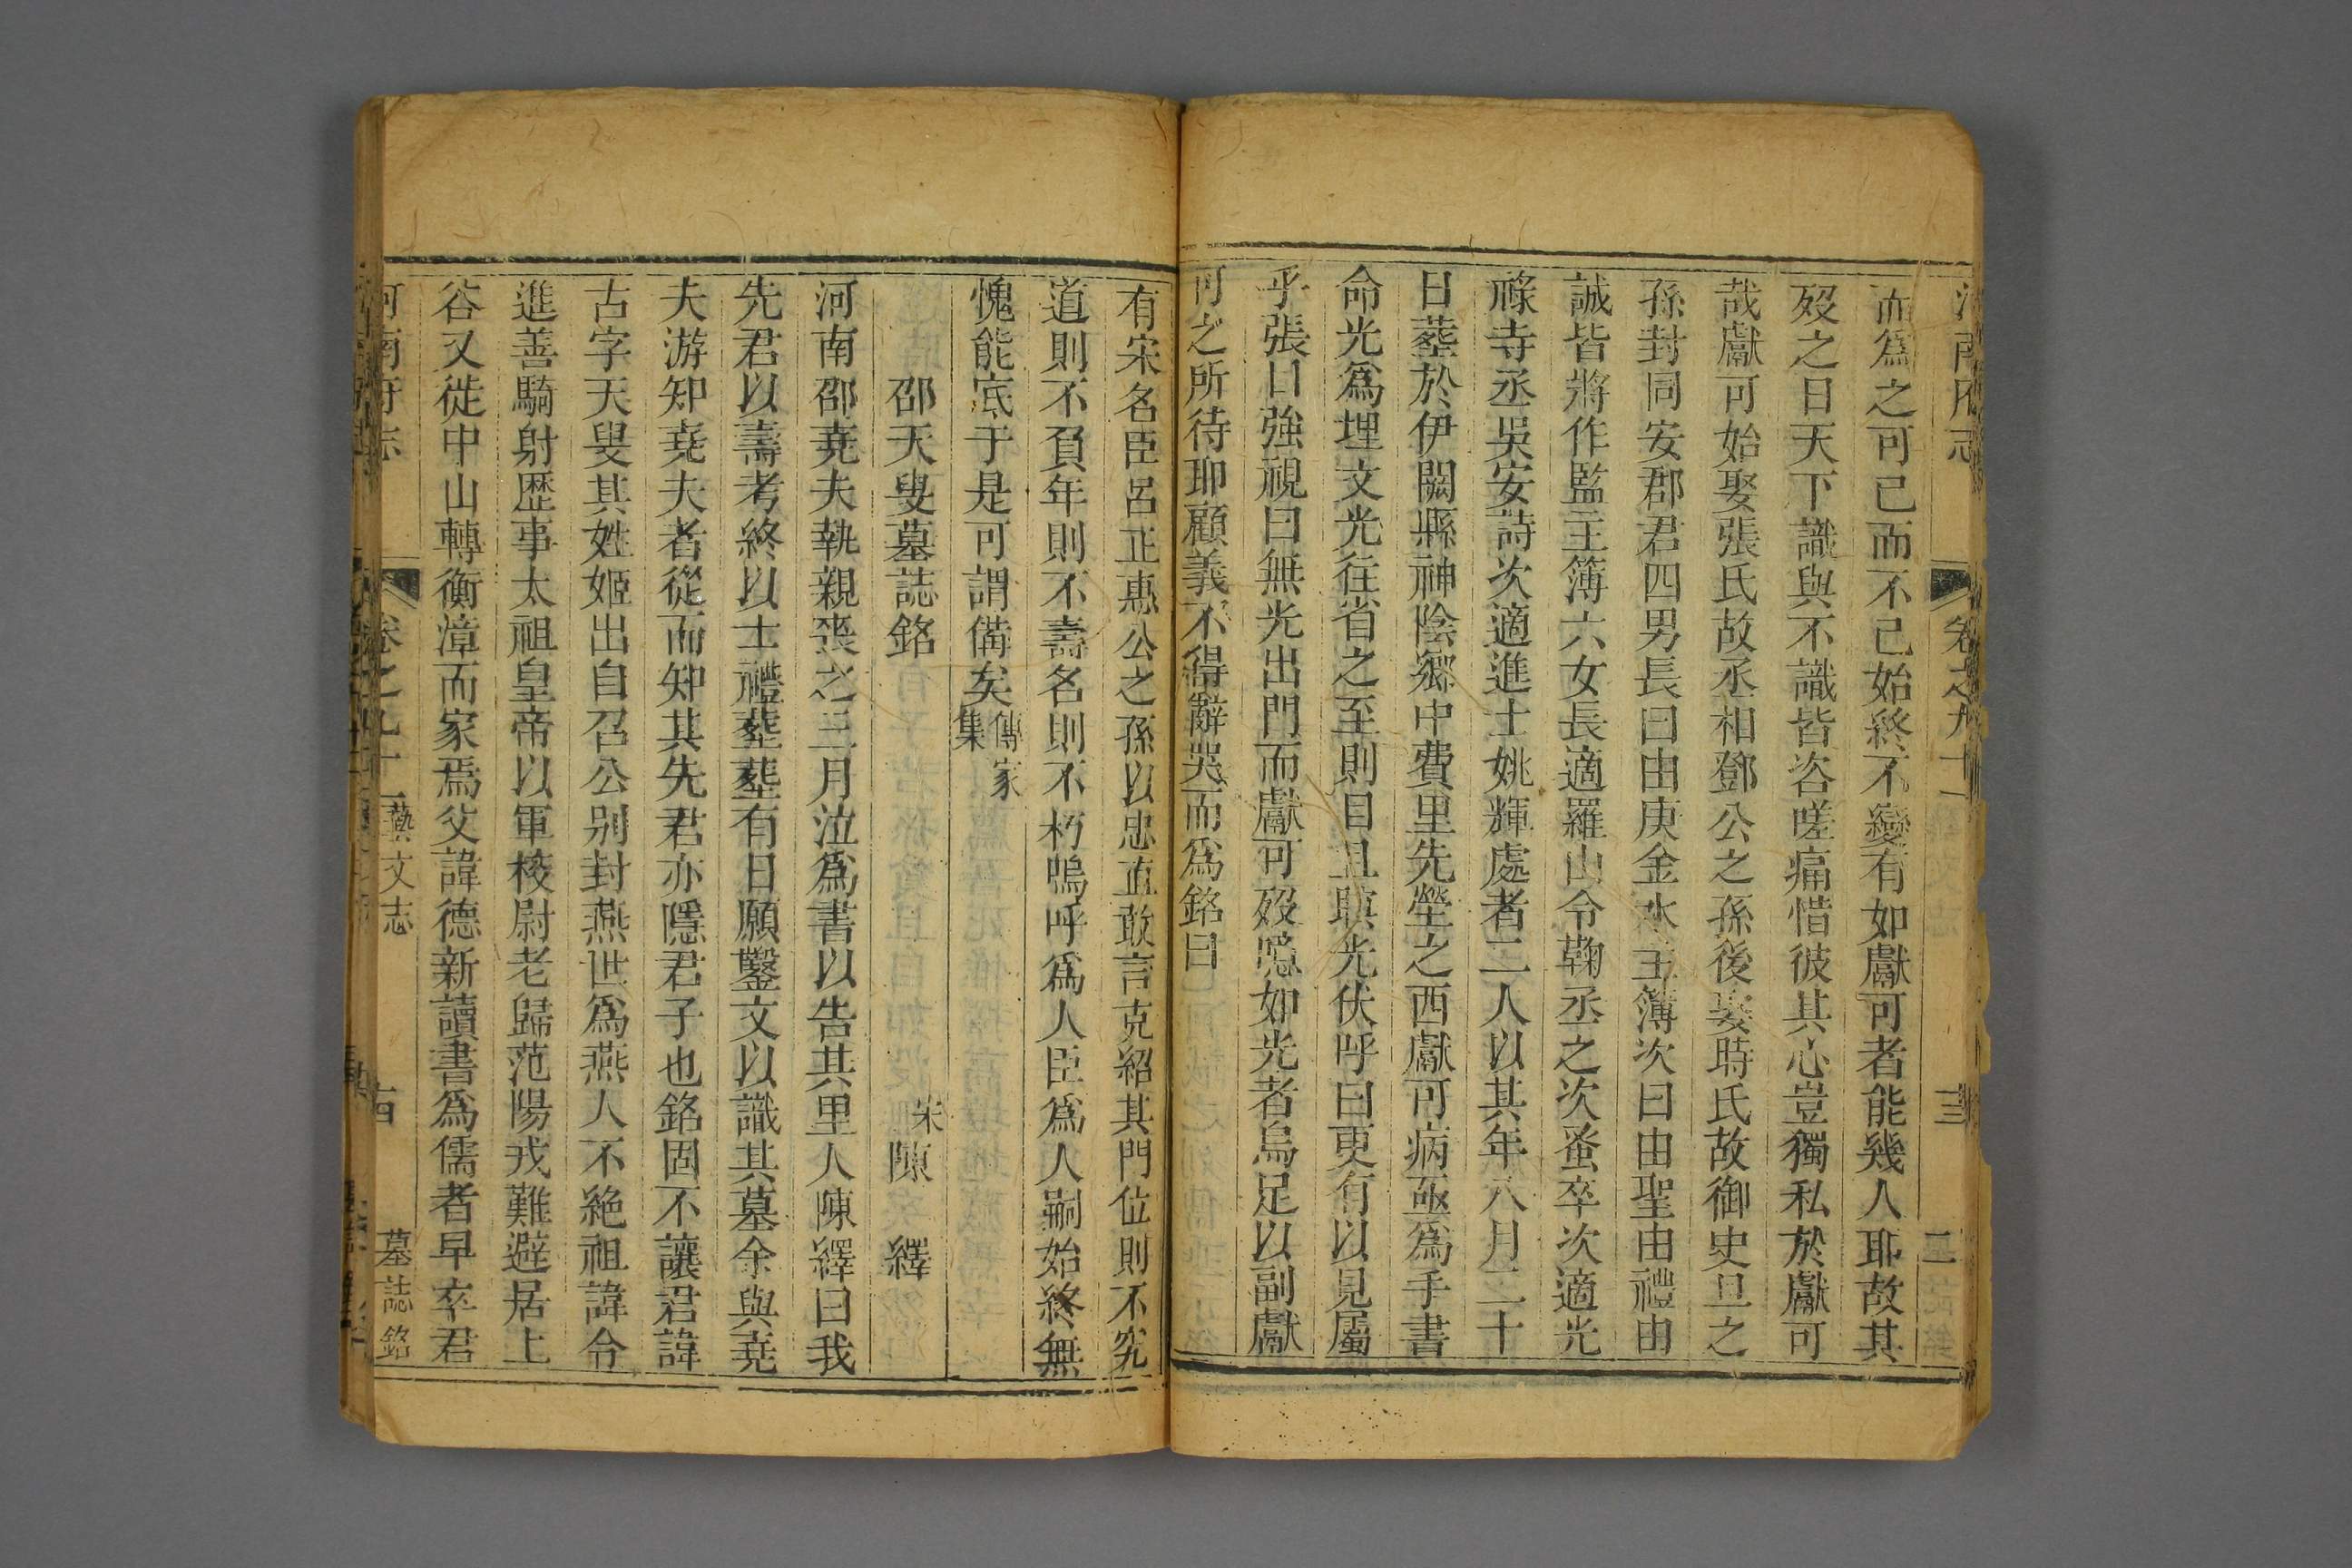 河南府志 卷之九十二 三 二
而爲之可已而不已始終不變有如獻可者能幾人耶故其
歿之日天下識與不識皆咨嗟痛惜彼其心豈獨私於獻可
哉獻可始娶張氏故丞相鄧公之孫後娶時氏故御史旦之
孫封同安郡君四男長曰由庚金水主簿次曰由聖由禮由
誠皆將作監主簿六女長適羅山令鞠丞之次蚤卒次適光
祿寺丞吳安詩次適進士姚輝處者二人以其年八月二十
日葬於伊闕縣神陰鄉中費里先塋之西獻可病亟爲手書
命光爲埋文光往省之至則目且瞑光伏呼曰更有以見屬
乎張目強視曰無光出門而獻可歿噫如光者烏足以副獻
可之所待耶顧義不得辭哭而爲銘曰
有宋名臣呂正惠公之孫以忠直敢言克紹其門位則不究
道則不負年則不壽名則不朽嗚呼爲人臣爲人嗣始終無
愧能底于是可謂備矣傳家集
邵天叟墓誌銘 宋 陳 繹
河南邵堯夫執親喪之三月泣爲書以告其里人陳繹曰我
先君以壽考終以士禮葬葬有日願鑿文以識其墓余與堯
夫游知堯夫者從而知其先君亦隱君子也銘固不讓君諱
古字天叟其姓姬出自召公别封燕世爲燕人不絶祖諱令
進善騎射歷事太祖皇帝以軍校尉老歸范陽戎難避居上
谷又徙中山轉衡漳而家焉父諱德新讀書爲儒者早卒君
河南府志 卷之九十二 藝文志 墓誌銘